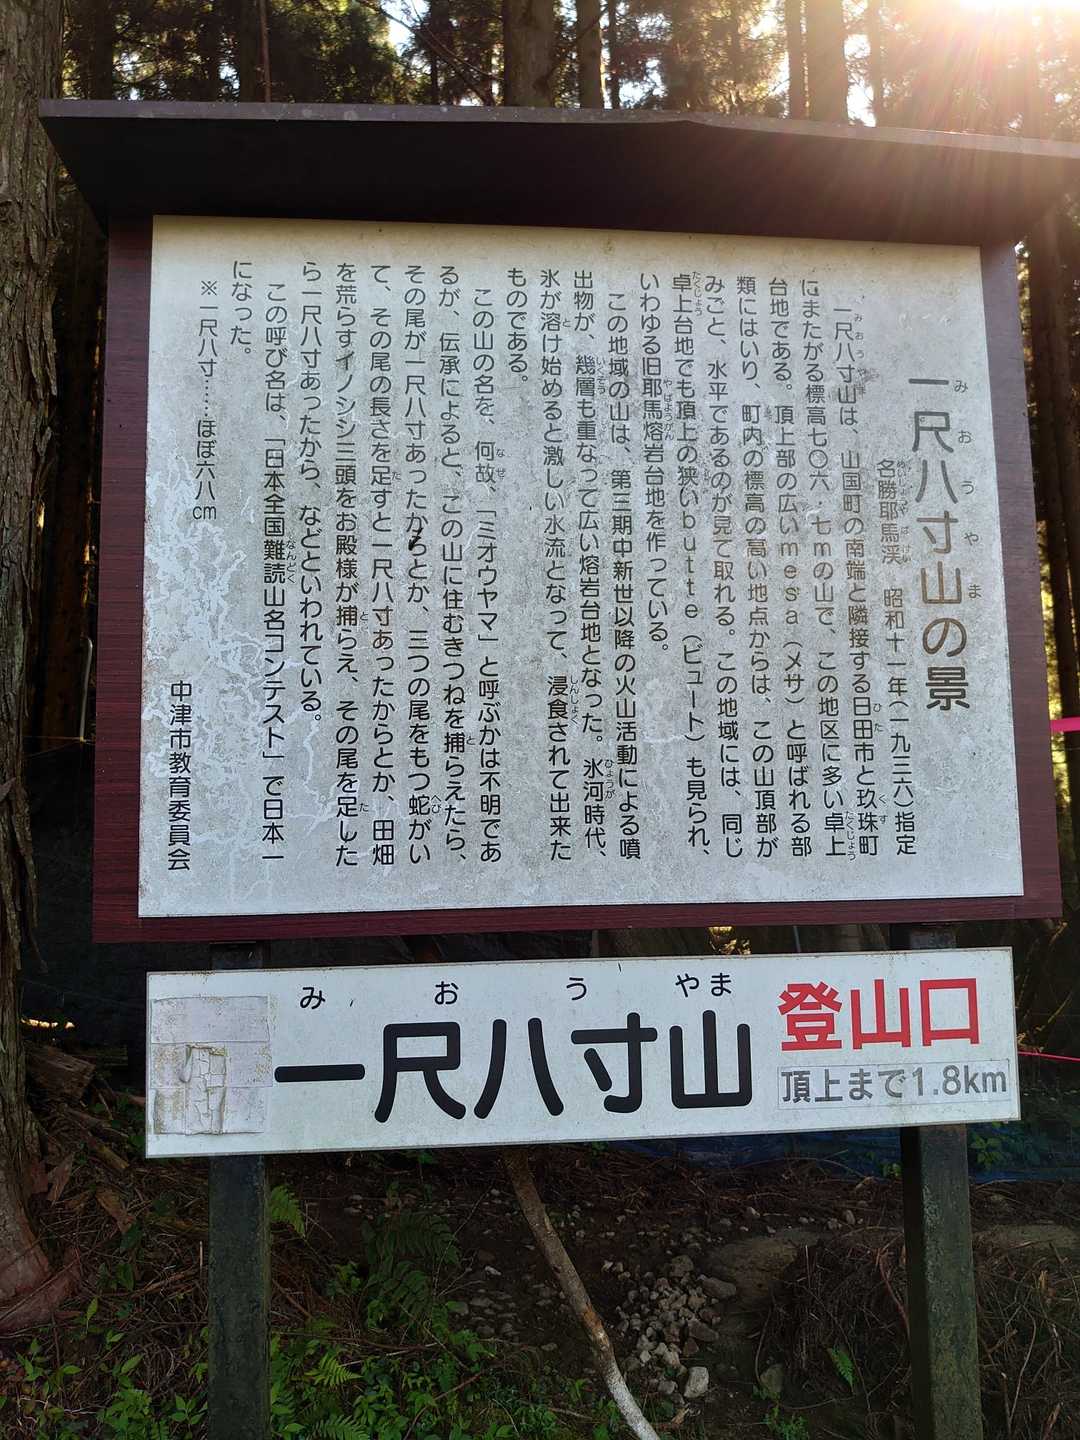 一尺八寸山の景
みおうやま
名勝耶馬渓　昭和十一年(一九三六)指定
めいしょうやばけい
一尺八寸山は、山国町の南端と隣接する日田市と玖珠町
みおうやま　ひた　くす
にまたがる標高七〇六．七mの山で、この地区に多い卓上
たくじょう
台地である。頂上部の広いmesa(メサ)と呼ばれる部
類にはいり、町内の標高の高い地点からは、この山頂部が
みごと、水平であるのが見て取れる。この地域には、同じ
卓上台地でも頂上の狭いbutte(ビュート)も見られ、
たくじょう
いわゆる旧耶馬熔岩台地を作っている。
やばようがん
この地域の山は、第三期中新世以降の火山活動による噴
出物が、幾層も重なって広い熔岩台地となった。氷河時代、
いくそう　ひょうが
氷が溶け始めると激しい水流となって、浸食されて出来た
と　しんしょく
ものである。
この山の名を、何故、「ミオウヤマ」と呼ぶかは不明であ
なぜ
るが、伝承によると、この山に住むきつねを捕らえたら、
と
その尾が一尺八寸あったからとか、三つの尾をもつ蛇がい
へび
て、その尾の長さを足すと一尺八寸あったからとか、田畑
た
を荒らすイノシシ三頭をお殿様が捕らえ、その尾を足した
と　た
ら一尺八寸あったから、などといわれている。
この呼び名は、「日本全国難読山名コンテスト」で日本一
なんどく
になった。
※一尺八寸……ほぼ六八cm
中津市教育委員会
み　お　う　やま
一尺八寸山
登山口
頂上まで1.8km